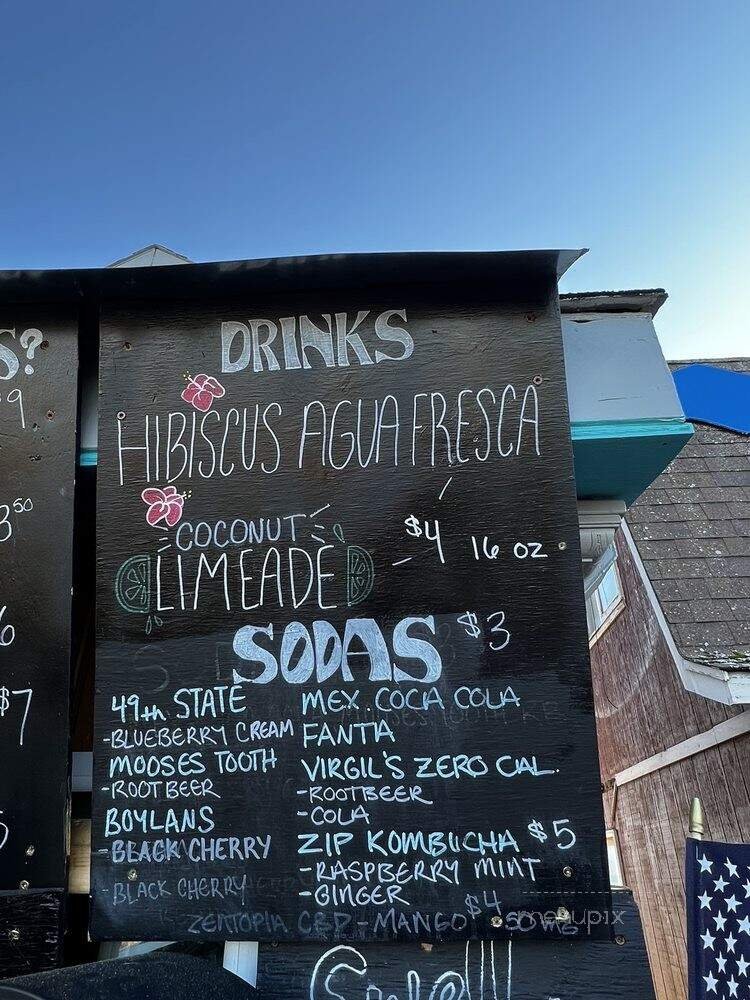 S?
9
3⁵⁰
6
$7
5
DRINKS
HIBISCUS AGUA FRESCA
COCONUT
LIMEADE
$4 16 oz
SODAS $3
49th STATE
-BLUEBERRY CREAM
MOOSES TOOTH
-ROOT BEER
BOYLANS
-BLACK CHERRY
-BLACK CHERRY
MEX. COCA COLA
FANTA
VIRGIL'S ZERO CAL.
-ROOTBEER
-COLA
ZIP KOMBUCHA $5
-RASPBERRY MINT
-GINGER
ZENTOPIA CBD-MANGO $4 50 mg
menupix